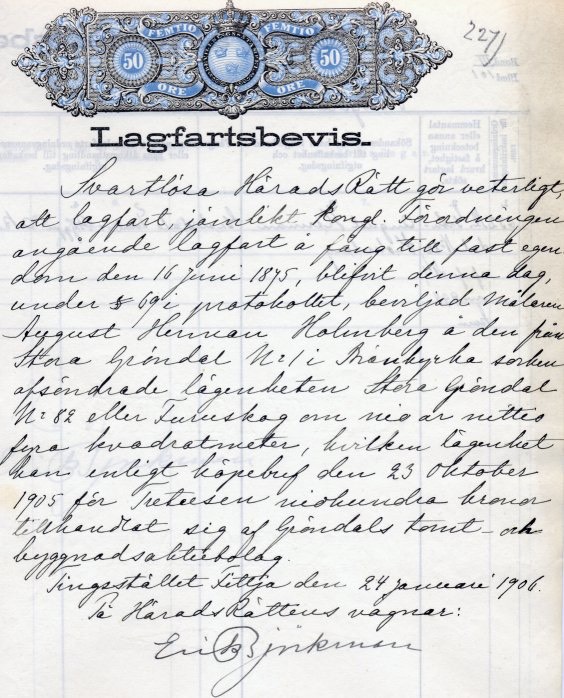 FEMTIO FEMTIO
50 50
ÖRE ÖRE
227/
Lagfartsbevis.
Svartlösa Härads Rätt gör veterligt,
att lagfart, jämlikt Kongl. Förordningen
angående lagfart å fång till fast egen
dom den 16 juni 1875, blifvit denna dag,
under § 69 i protokollet, beviljad Målaren
August Herman Holmberg å den från
Stora Gröndal No 1 i Brännkyrka socken
afsöndrade lägenheten Stora Gröndal
No 82 eller Furuskog om
fyra kvadratmeter, hvilken lägenhet
han enligt köpebref den 23 Oktober
1905 för Tretusen niohundra kronor
tillhandlat sig af Gröndals tomt- och
byggnadsaktiebolag.
Tingsstället Fittja den 24 januari 1906.
På Härads Rättens vägnar:
Erik Björkman